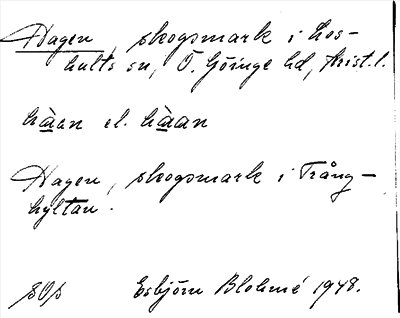 Hagen, skogsmark i Los-
hults sn, Ö. Göinge hd, Krist. l.
hàan el. hàan
Hagen, skogsmark i Trång-
hyltan.
Esbjörn Blohmé 1948.